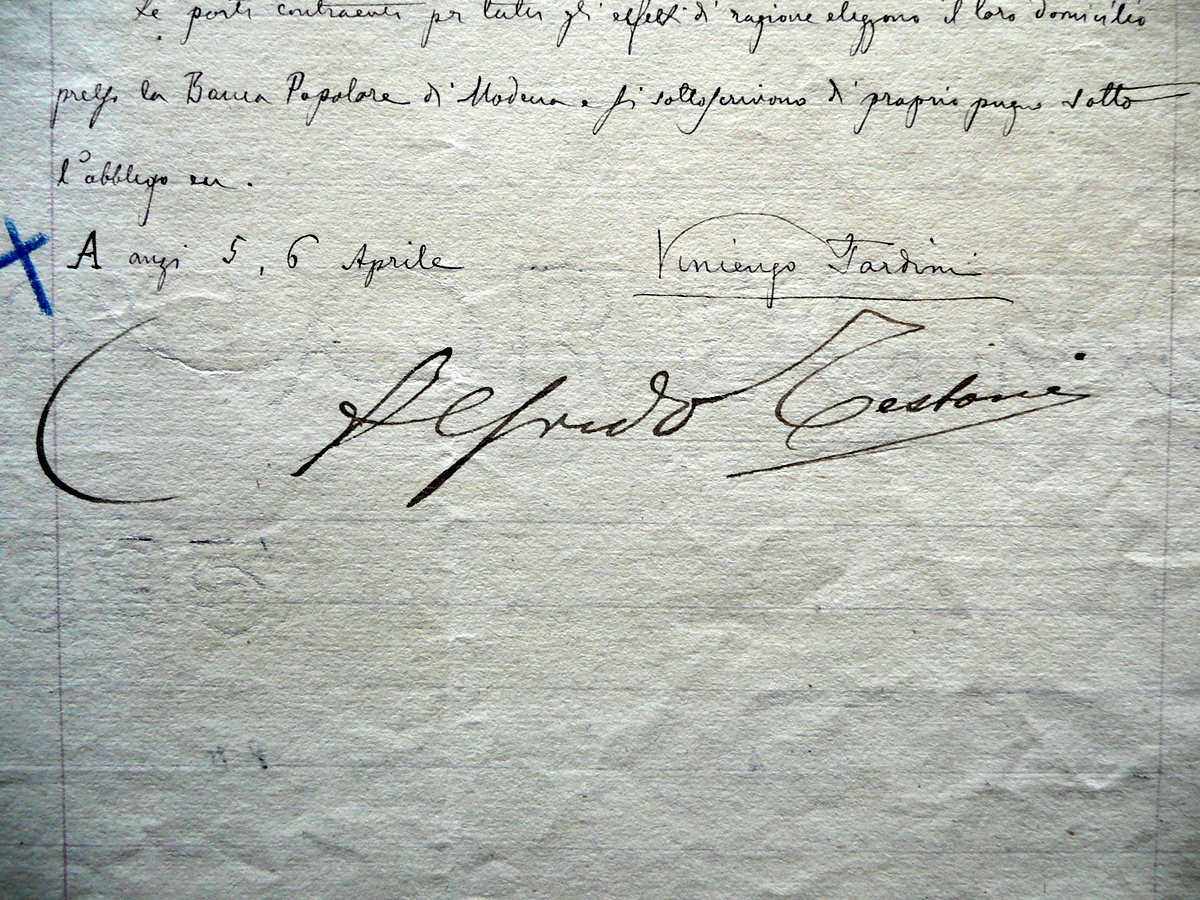 Le parti contraenti per tutti gli effetti di ragione eleggono il loro domicilio
presso la Banca Popolare di Modena e si sottoscrivono di proprio pugno sotto
l'obbligo
A anzi 5, 6 Aprile Vincenzo Tardini
Alfredo Testoni